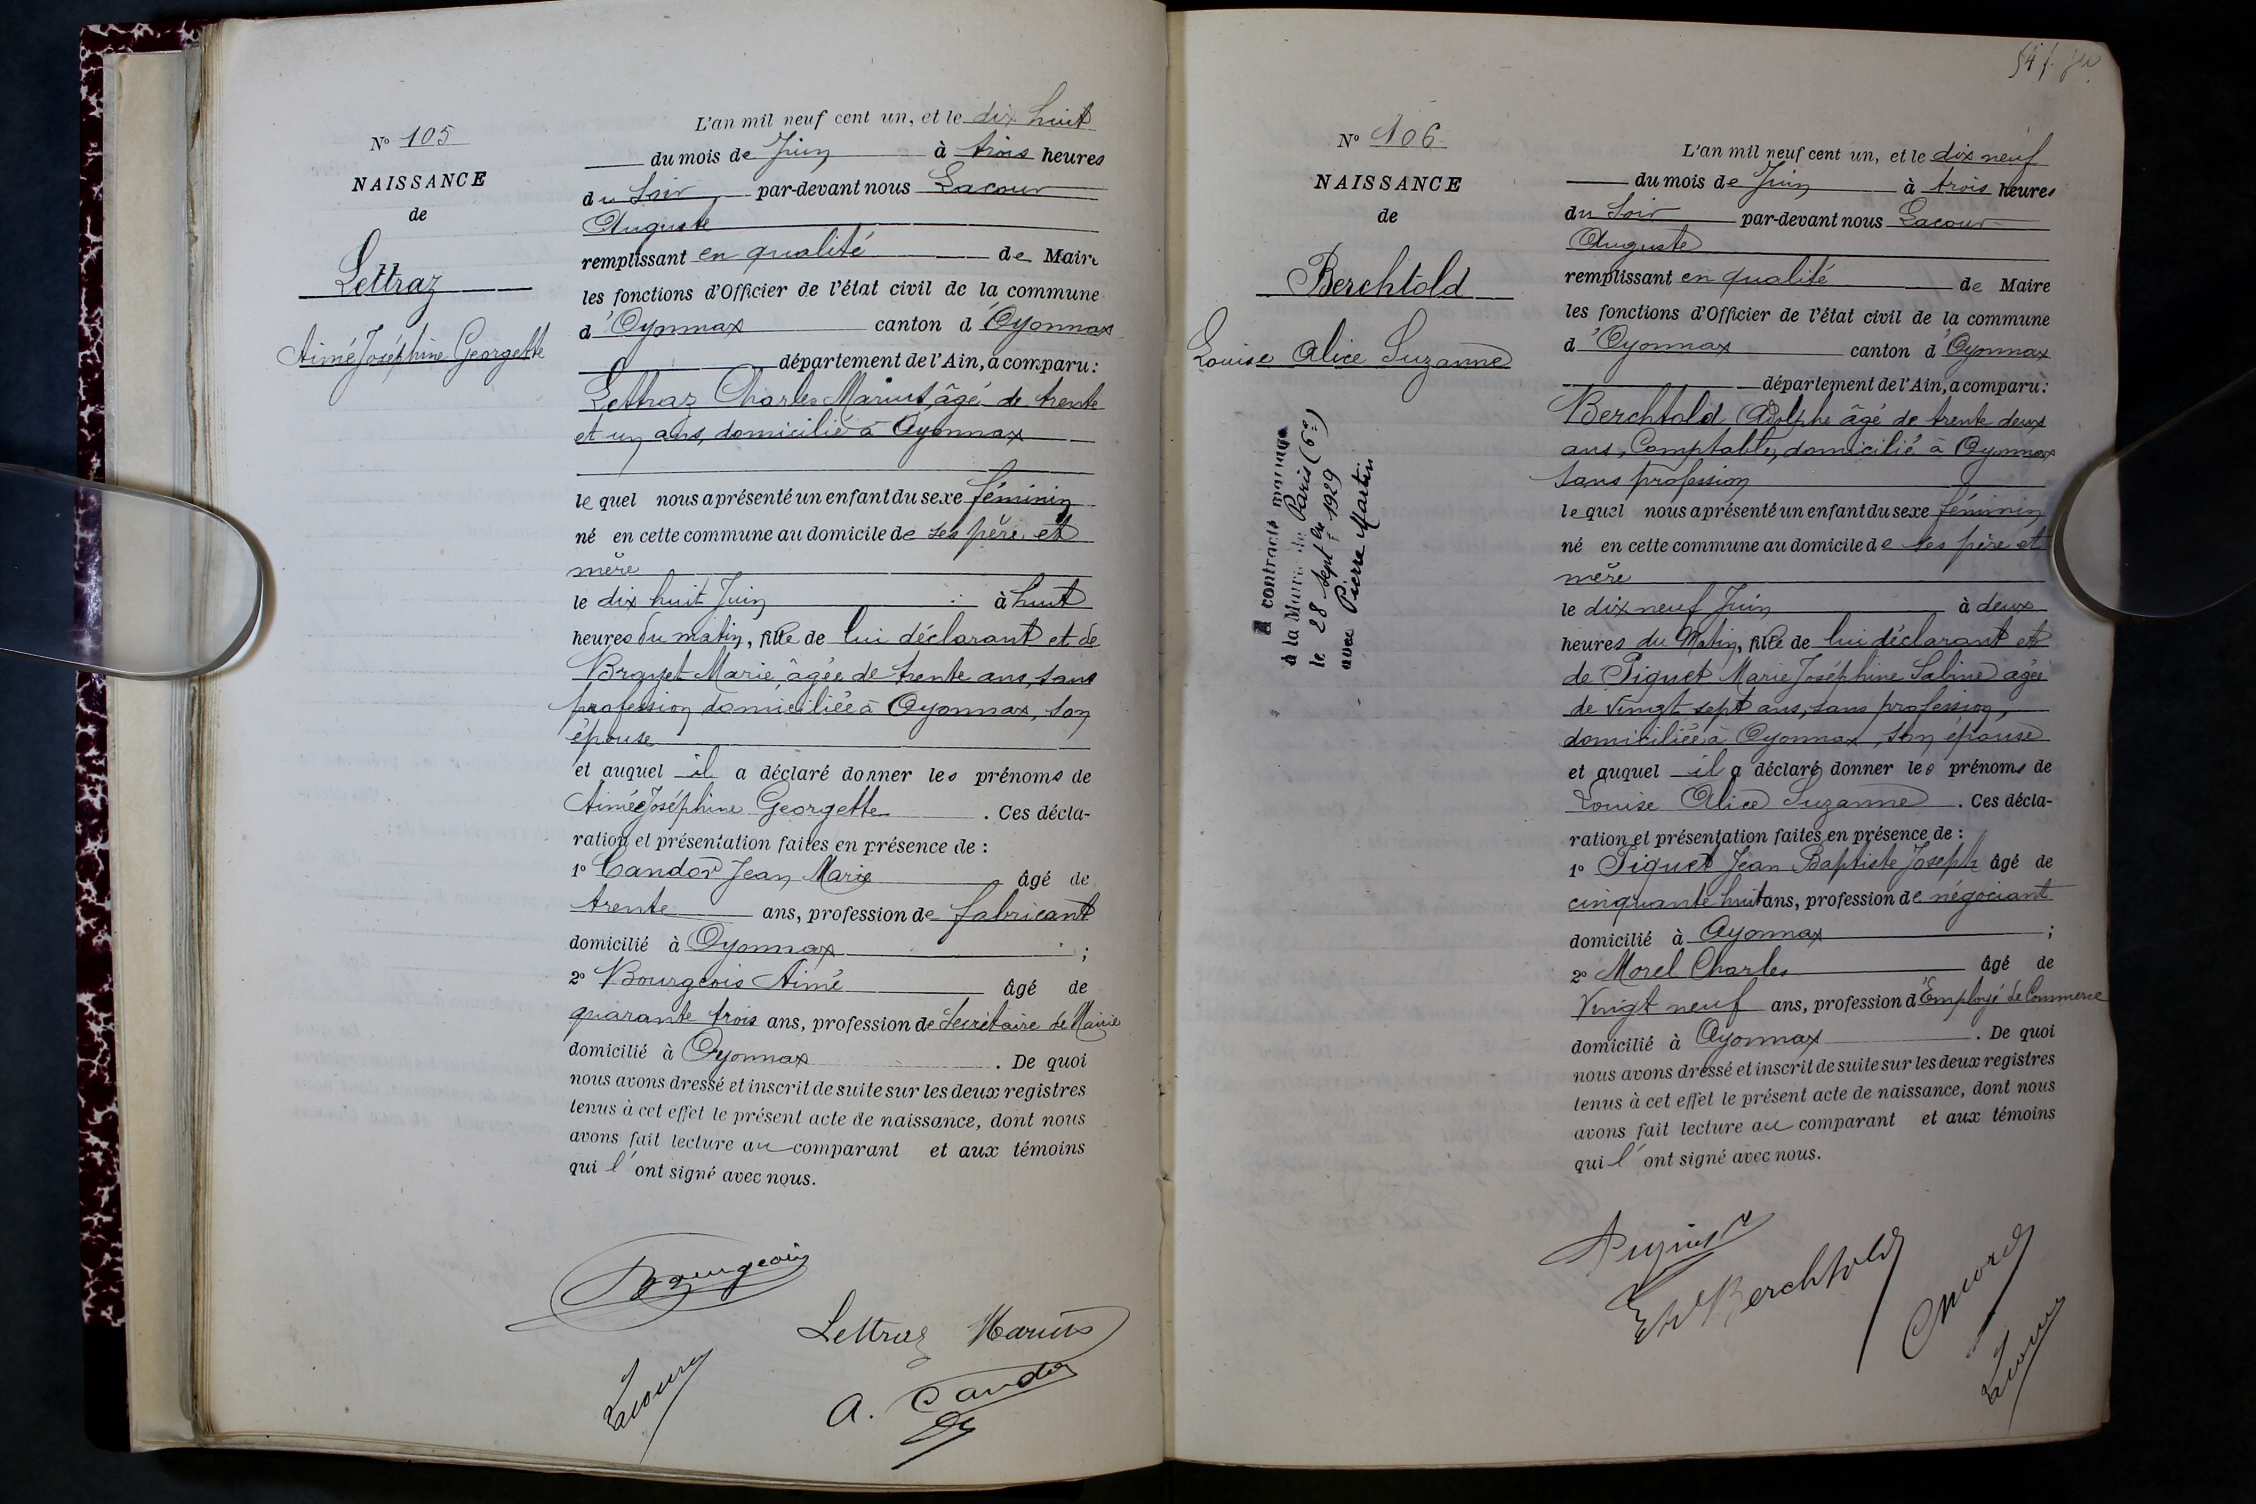 N° 105
NAISSANCE
de
Lettraz
Aimé Joséphine Georgette
L'an mil neuf cent un, et le dix huit
du mois de Juin à trois heures
du Soir par-devant nous Lacour
Auguste
remplissant en qualité de Maire
les fonctions d'Officier de l'état civil de la commune
d'Oyonnax canton d'Oyonnax
département de l'Ain, a comparu :
Lettraz Charles Marius, âgé de trente
et un ans, domicilié à Oyonnax
le quel nous a présenté un enfant du sexe féminin
né en cette commune au domicile de ses père et
mère
le dix huit Juin à huit
heures du matin, fille de lui déclarant et de
Brayet Marie âgée de trente ans, sans
profession domiciliée à Oyonnax, son
épouse
et auquel il a déclaré donner les prénoms de
Aimée Joséphine Georgette . Ces décla-
ration et présentation faites en présence de :
1° Candor Jean Marie âgé de
trente ans, profession de fabricant
domicilié à Oyonnax ;
2° Bourgeois Aimé âgé de
quarante trois ans, profession de Secrétaire de Mairie
domicilié à Oyonnax . De quoi
nous avons dressé et inscrit de suite sur les deux registres
tenus à cet effet le présent acte de naissance, dont nous
avons fait lecture au comparant et aux témoins
qui l'ont signé avec nous.
Bourgeois
Lettraz Marius
Lacour
A. Candor
N° 106
NAISSANCE
de
Berchtold
Louise Alice Suzanne
A contracté mariage
à la Mairie de Paris (6e)
le 28 Sept bre 1929
avec Pierre Martin
L'an mil neuf cent un, et le dix neuf
du mois de Juin à trois heures
du Soir par-devant nous Lacour
Auguste
remplissant en qualité de Maire
les fonctions d'Officier de l'état civil de la commune
d'Oyonnax canton d'Oyonnax
département de l'Ain, a comparu :
Berchtold Adolphe âgé de trente deux
ans, Comptable, domicilié à Oyonnax
sans profession
le quel nous a présenté un enfant du sexe féminin
né en cette commune au domicile de ses père et
mère
le dix neuf Juin à deux
heures du Matin, fille de lui déclarant et
de Piquet Marie Joséphine Sabine âgée
de vingt sept ans, sans profession,
domiciliée à Oyonnax, son épouse
et auquel il a déclaré donner les prénoms de
Louise Alice Suzanne . Ces décla-
ration et présentation faites en présence de :
1° Piquet Jean Baptiste Joseph âgé de
cinquante huit ans, profession de négociant
domicilié à Oyonnax ;
2° Morel Charles âgé de
Vingt neuf ans, profession d'Employé de Commerce
domicilié à Oyonnax . De quoi
nous avons dressé et inscrit de suite sur les deux registres
tenus à cet effet le présent acte de naissance, dont nous
avons fait lecture au comparant et aux témoins
qui l'ont signé avec nous.
Berchtold
Morel
Lacour